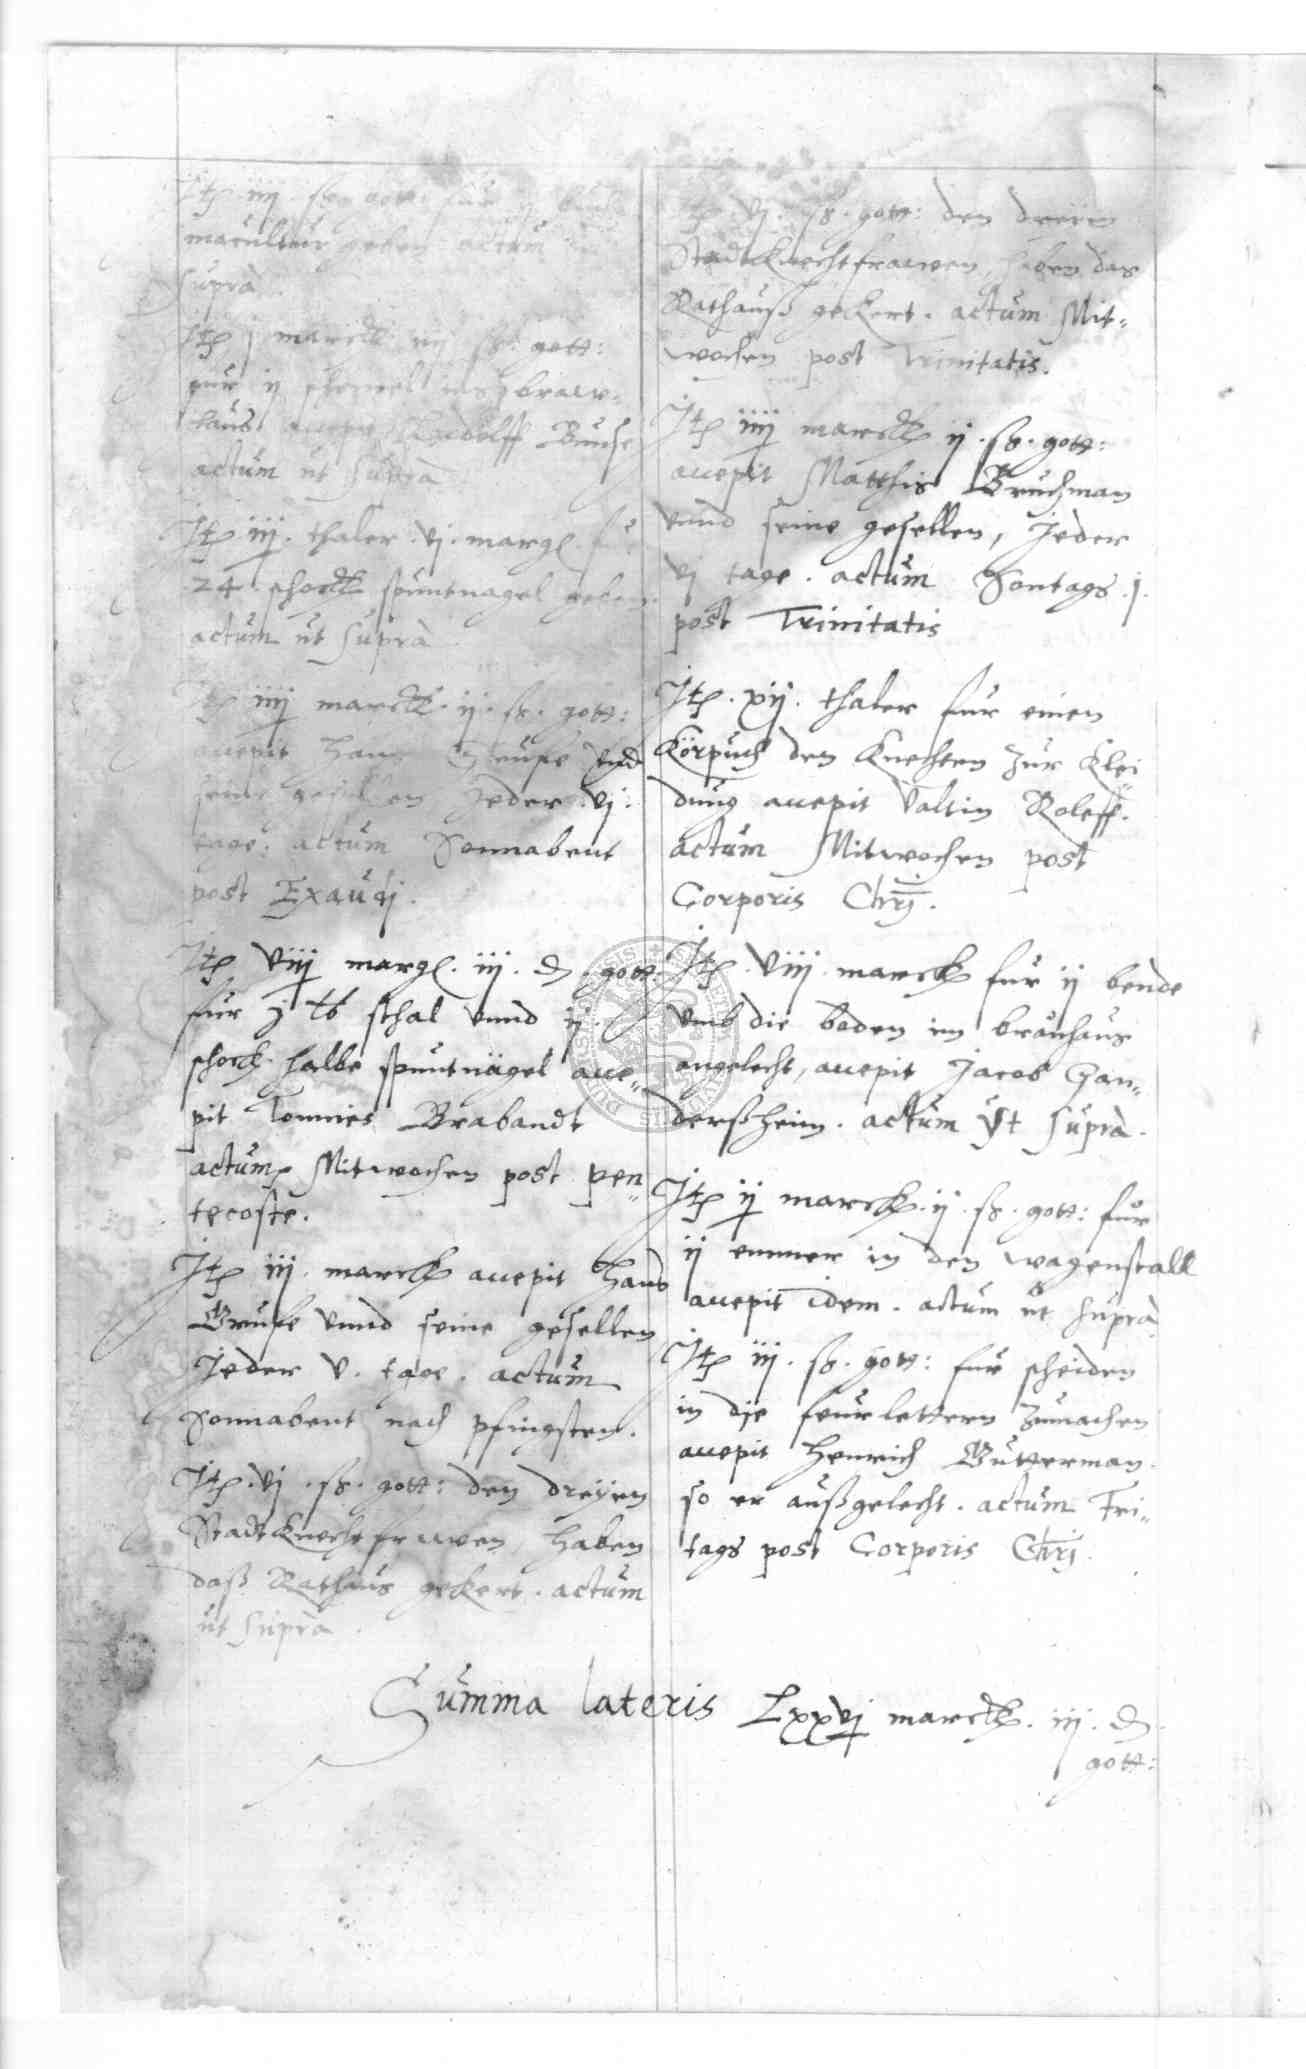 Jtem iiij ß gott: für
maculatur geben actum
supra.
Jtem j marck iij ß. gott:
für ij schemel ins braw-
haus Rudolff Buch
actum ut supra
Jtem iij. thaler. vj. margl.
24. schock spuntnagel geben.
actum ut supra
Jtem iiij marck. ij. ß. gott:
accepit Hans Gruse vnd
seine gesellen Jeder. vj.
tage. actum Sonnabent
post Exaudj.
Jtem viij margl. iij. d. gott.
für j lb schal vnnd ij.
schock halbe spuntnägel acce=
pit Tonnies Brabandt
actum Mitwochen post pen=
tecoste.
Jtem iij. marck accepit Hans
Gruse vnnd seine gesellen
Jeder v. tage. actum
Sonnabent nach pfingsten.
Jtem. vj. ß. gott: den dreyen
Stadtknechtfrawen, haben
daß Rathaus gekert. actum
ut supra.
Jtem vj. ß. gott: den dreien
Stadtknechtfrawen, haben das
Rathauß gekert. actum Mit=
wochen post Trinitatis.
Jtem iiij marck ij. ß. gott:
accepit Matthis Bruchman
vnnd seine gesellen, Jeder
vj tage. actum Sontags. j.
post Trinitatis
Jtem. xij. thaler für einen
Körpuch den Knechten zur Klei
dung accepit Valtin Roleff.
actum Mitwochen post
Corporis Chrj.
Jtem. viij. marck für ij bende
vmb die boden im brauhaus
angelecht, accepit Jacob Gan=
derßheim. actum Vt supra.
Jtem ij marck. ij. ß. gott: für
ij emmer in den wagenstall
accepit idem. actum ut supra
Jtem iij. ß. gott: für scheiden
in die feurlettern zumachen
accepit Henrich Gutterman.
so er außgelecht. actum Fri=
tags post Corporis Chrj.
Summa lateris Lxxvj marck. iij. d.
gott: